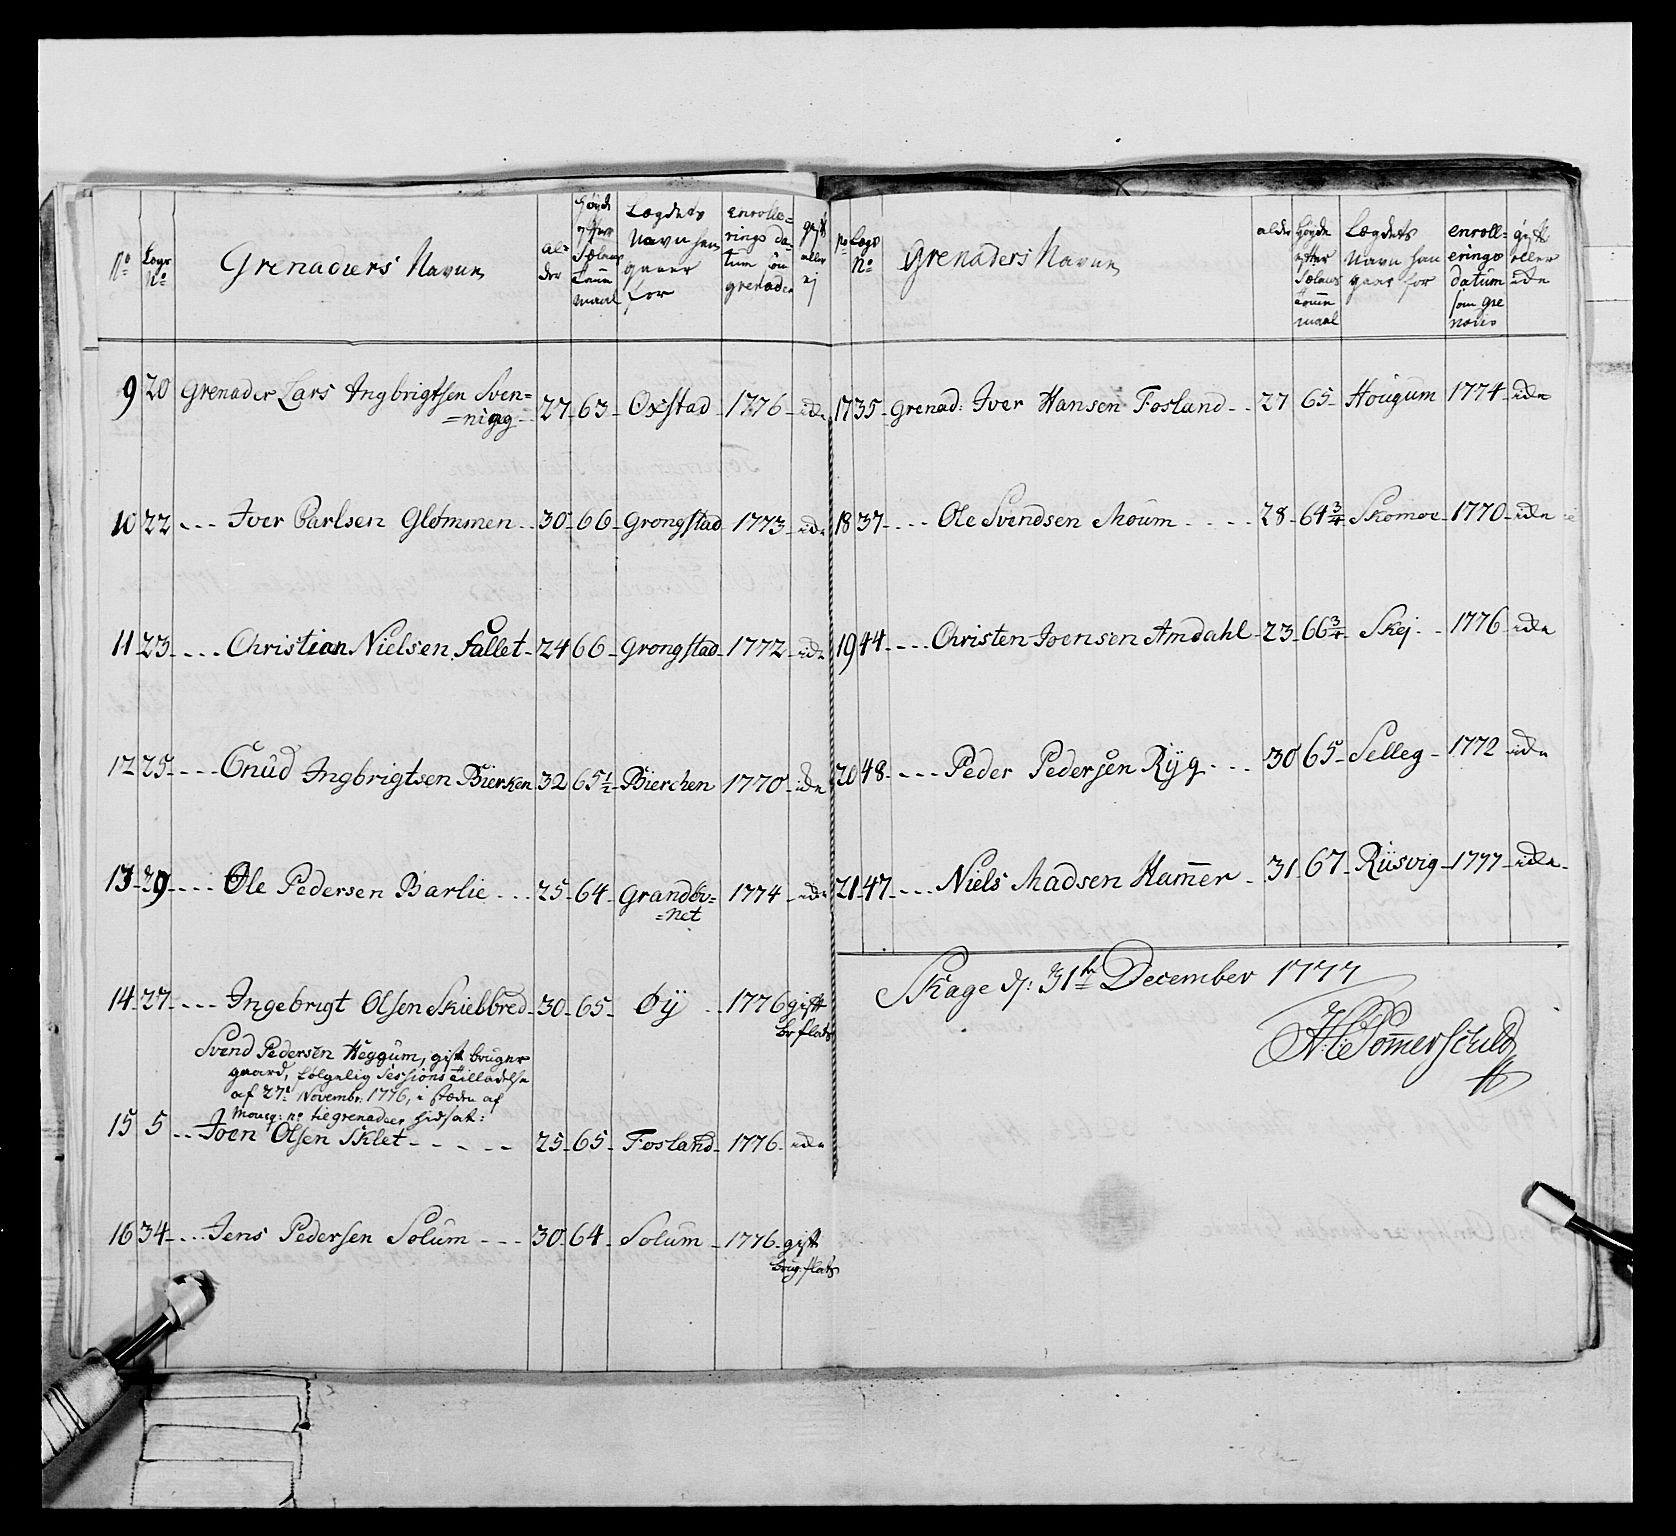 No
Legs No
Grenadiers Navne
al=
der
Høyde
efter
Sølans
tomme
maal
Lægdets
Navn han
gaaer
for
enrolle=
rings da=
tum som
grenader
gift
eller
ej
9 20 Grenader Lars Ingbrigtsen Sven=
=ning 27 63 Oxstad 1776 ide
10 22 Iver Carlsen Glømmen 30 66 Grongstad 1773 ide
11 23 Christian Nielsen Fallet 24 66 Grongstad 1772 ide
12 25 Cnud Ingbrigtsen Bierken 32 65½ Bierchen 1770 ide
13 29 Ole Pedersen Barlie 25 64 Grandøi=
=net 1774 ide
14 27 Ingebrigt Olsen Skielbred 30 65 Øÿ 1776 gift
br plats
Svend Pedersen Heggum, gift bruger
gaard, følgelig Sessions tilladelse
af 27de Novembr. 1776, i stæden af
Mousq: no tiegrenadeer hidsat:
15 5 Joen Olsen Sklet 25 65 Fosland 1776 ide
16 34 Jens Pedersen Solum 30 64 Solum 1776 gift
brug plats
no
Legs
no
Grenaders Navne
alder
Høyde
efter
Sølans
tomme
maal
Lægdets
Navn han
gaar for
enroll=
erings
datum
som gre
nader
gift
eller
ide
17 35 Grenad: Iver Hansen Fosland 27 65 Hougum 1774 ide
18 37 Ole Svendsen Moum 28 64¾ Skomoe 1770 ide
19 44 Christen Joensen Amdahl 23 66¾ Skej 1776 ide
20 48 Peder Pedersen Rÿg 30 65 Selleg 1772 ide
21 47 Niels Madsen Hamer 31 67 Riisvig 1777 ide
Skage d: 31te December 1777
H C Sommerschild